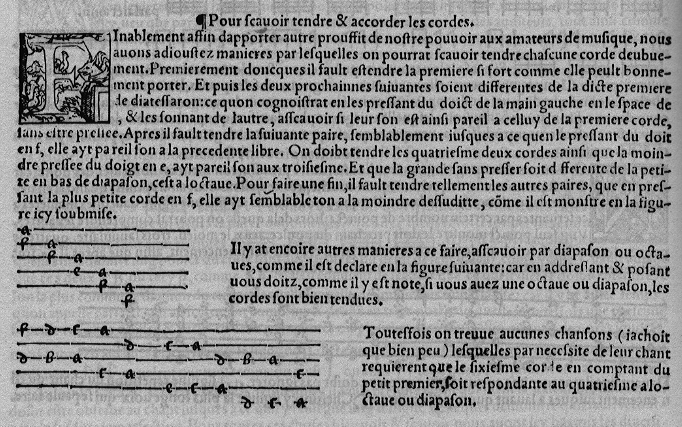 ¶Pour ſcauoir tendre & accorder les cordes.
FInablement affin dapporter autre prouffit de noſtre pouuoir aux amateurs de muſique, nous
auons adiouſtez manieres par leſquelles on pourrat ſcauoir tendre chaſcune corde deubue-
ment. Premierement doncques il fault eſtendre la premiere ſi fort comme elle peult bonne-
ment porter. Et puis les deux prochainnes ſuiuantes ſoient differentes de la dicte premiere
de diateſſaron: ce quon cognoiſtrat en les preſſant du doict de la main gauche en le ſpace de
, & les ſonnant de lautre, aſſcauoir ſi leur ſon eſt ainſi pareil a celluy de la premiere corde,
ſans eſtre preſſee. Apres il fault tendre la ſuiuante paire, ſemblablement iuſques a ce quen le preſſant du doit
en f, elle ayt pareil ſon a la precedente libre. On doibt tendre les quatrieſme deux cordes ainſi que la moin-
dre preſſee du doigt en e, ayt pareil ſon aux troiſieſme. Et que la grande ſans preſſer ſoit d fferente de la peti-
te en bas de diapaſon, ceſt a loctaue. Pour faire une fin, il fault tendre tellement les autres paires, que en preſ-
ſant la plus petite corde en f, elle ayt ſemblable ton a la moindre deſſuditte, cõme il est monſtre en la figu-
re icy ſoubmiſe.
a
f a
f a
e a
f a
f
Il y at encoire autres manieres a ce faire, aſſcauoir par diapaſon ou octa-
ues, comme il eſt declare en la figure ſuiuante: car en addreſſant & poſant
uous doitz, comme il y eſt note, ſi uous auez une octaue ou diapaſon, les
cordes ſont bien tendues.
f d c a
d c a
d b a d b a
c a c
e c a
d c a
Touteſfois on treuue aucunes chanſons (iachoit
que bien peu) leſquelles par neceſsite de leur chant
requierent que le ſixieſme corde en comptant du
petit premier, ſoit reſpondante au quatrieſme a lo-
ctaue ou diapaſon.